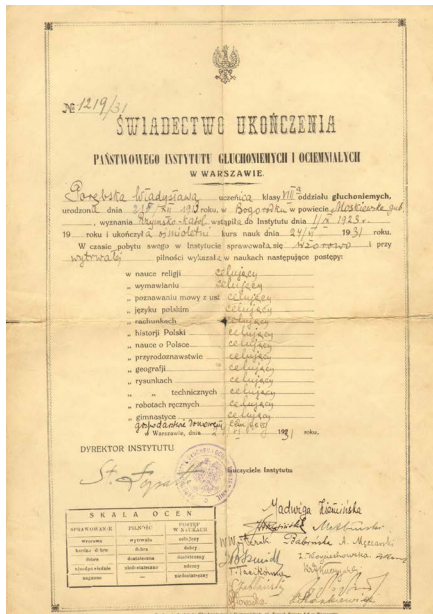 № 1219/31
ŚWIADECTWO UKOŃCZENIA
PAŃSTWOWEGO INSTYTUTU GŁUCHONIEMYCH I OCIEMNIAŁYCH
W WARSZAWIE.
Porębska Władysława uczenica klasy VIII a oddziału głuchoniemych,
urodzona dnia roku, w Bogorodsku w powiecie Moskiewsk. gub.
, wyznania Rzymsko-katol wstąpiła do Instytutu dnia 1/IX 1923 r.
19 roku i ukończyła ośmioletni kurs nauk dnia 24/VI 1931 roku.
W czasie pobytu swego w Instytucie sprawowała się wzorowo i przy
wytrwałej pilności wykazała w naukach następujące postępy:
w nauce religji celujący
„ wymawianiu celujący
„ poznawaniu mowy z ust celujący
„ języku polskim celujący
„ rachunkach celujący
„ historji Polski celujący
„ nauce o Polsce celujący
„ przyrodoznawstwie celujący
„ geografji celujący
„ rysunkach celujący
„ „ technicznych celujący
„ robotach ręcznych celujący
„ gimnastyce celujący
gospodarstwie domowym celujący
Warszawie, dnia 1931 roku.
DYREKTOR INSTYTUTU
Nauczyciele Instytutu
Jadwiga
A. Męczarski
Z. Wojciechowska
SKALA OCEN
SPRAWOWANIE PILNOŚĆ POSTĘP W NAUKACH
wzorowe wytrwała celujący
bardzo dobre dobra dobry
dobre dostateczna dostateczny
nieodpowiednie niedostateczna mierny
naganne — niedostateczny